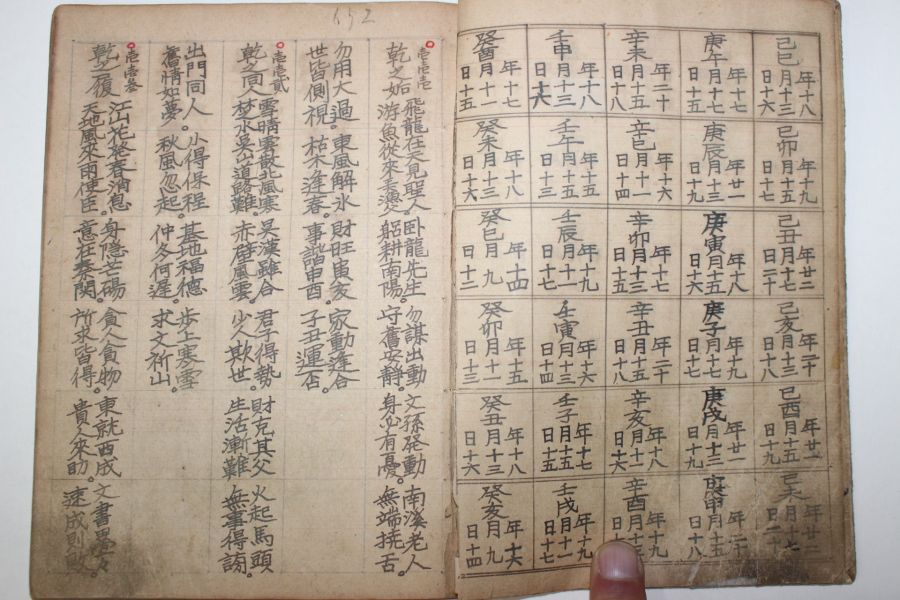 己巳 年十八 月十三 日十六
己卯 年十九 月十五 日十七
己丑 年廿二 月十七 日二十
己亥 年二十 月十三 日十八
己酉 年廿一 月十五 日十九
己未 年廿二 月十七 日二十
庚午 年十七 月十七 日十五
庚辰 年廿一 月十三 日十九
庚寅 年十八 月十五 日十六
庚子 年十九 月十七 日十七
庚戌 年廿一 月十三 日十九
庚申 年二十 月十五 日十八
辛未 年二十 月十五 日十八
辛巳 年十六 月十一 日十四
辛卯 年十七 月十三 日十五
辛丑 年二十 月十五 日十八
辛亥 年十八 月十一 日十六
辛酉 年十九 月十三 日十
壬申 年十八 月十三 日十六
壬午 年十五 月十五 日十三
壬辰 年十九 月十一 日十七
壬寅 年十六 月十三 日十四
壬子 年十七 月十五 日十五
壬戌 年十九 月十一 日十七
癸酉 年十七 月十一 日十五
癸未 年十八 月十三 日十六
癸巳 年十四 月九 日十二
癸卯 年十五 月十一 日十三
癸丑 年十八 月十三 日十六
癸亥 年十六 月九 日十四
152
壹壹壹 飛龍在天見聖人 臥龍先生 勿謀出動 文孫發動 南溪老人
乾之姤 游魚從來 躬耕南陽。 守舊安靜。 身必有憂。 無端撓舌。
勿用大過。 東風解氷 財旺寅亥 家動逢合
世皆側視。 枯木逢春。 事諧申酉。 子丑運否。
壹壹貳 雲晴雲散北風寒 吳漢雖合 君子得勢 財乞其父 火起馬頭
乾之同人 楚水吳山道路難。 赤壁風雲。 少人欺世。 生活漸難。 無事得謗。
出門同人 小得保程 基地福德 步上寒雪
舊情如夢。 秋風忽起。 仲冬何遲。 求文祈山。
壹壹叁 江花發春消息 身隱芒碭 貪人貪物 東就西成 文書疊々
乾之履 天地風來雨使臣。 意在秦關。 所求皆得。 貴人來助。 速成則敗。